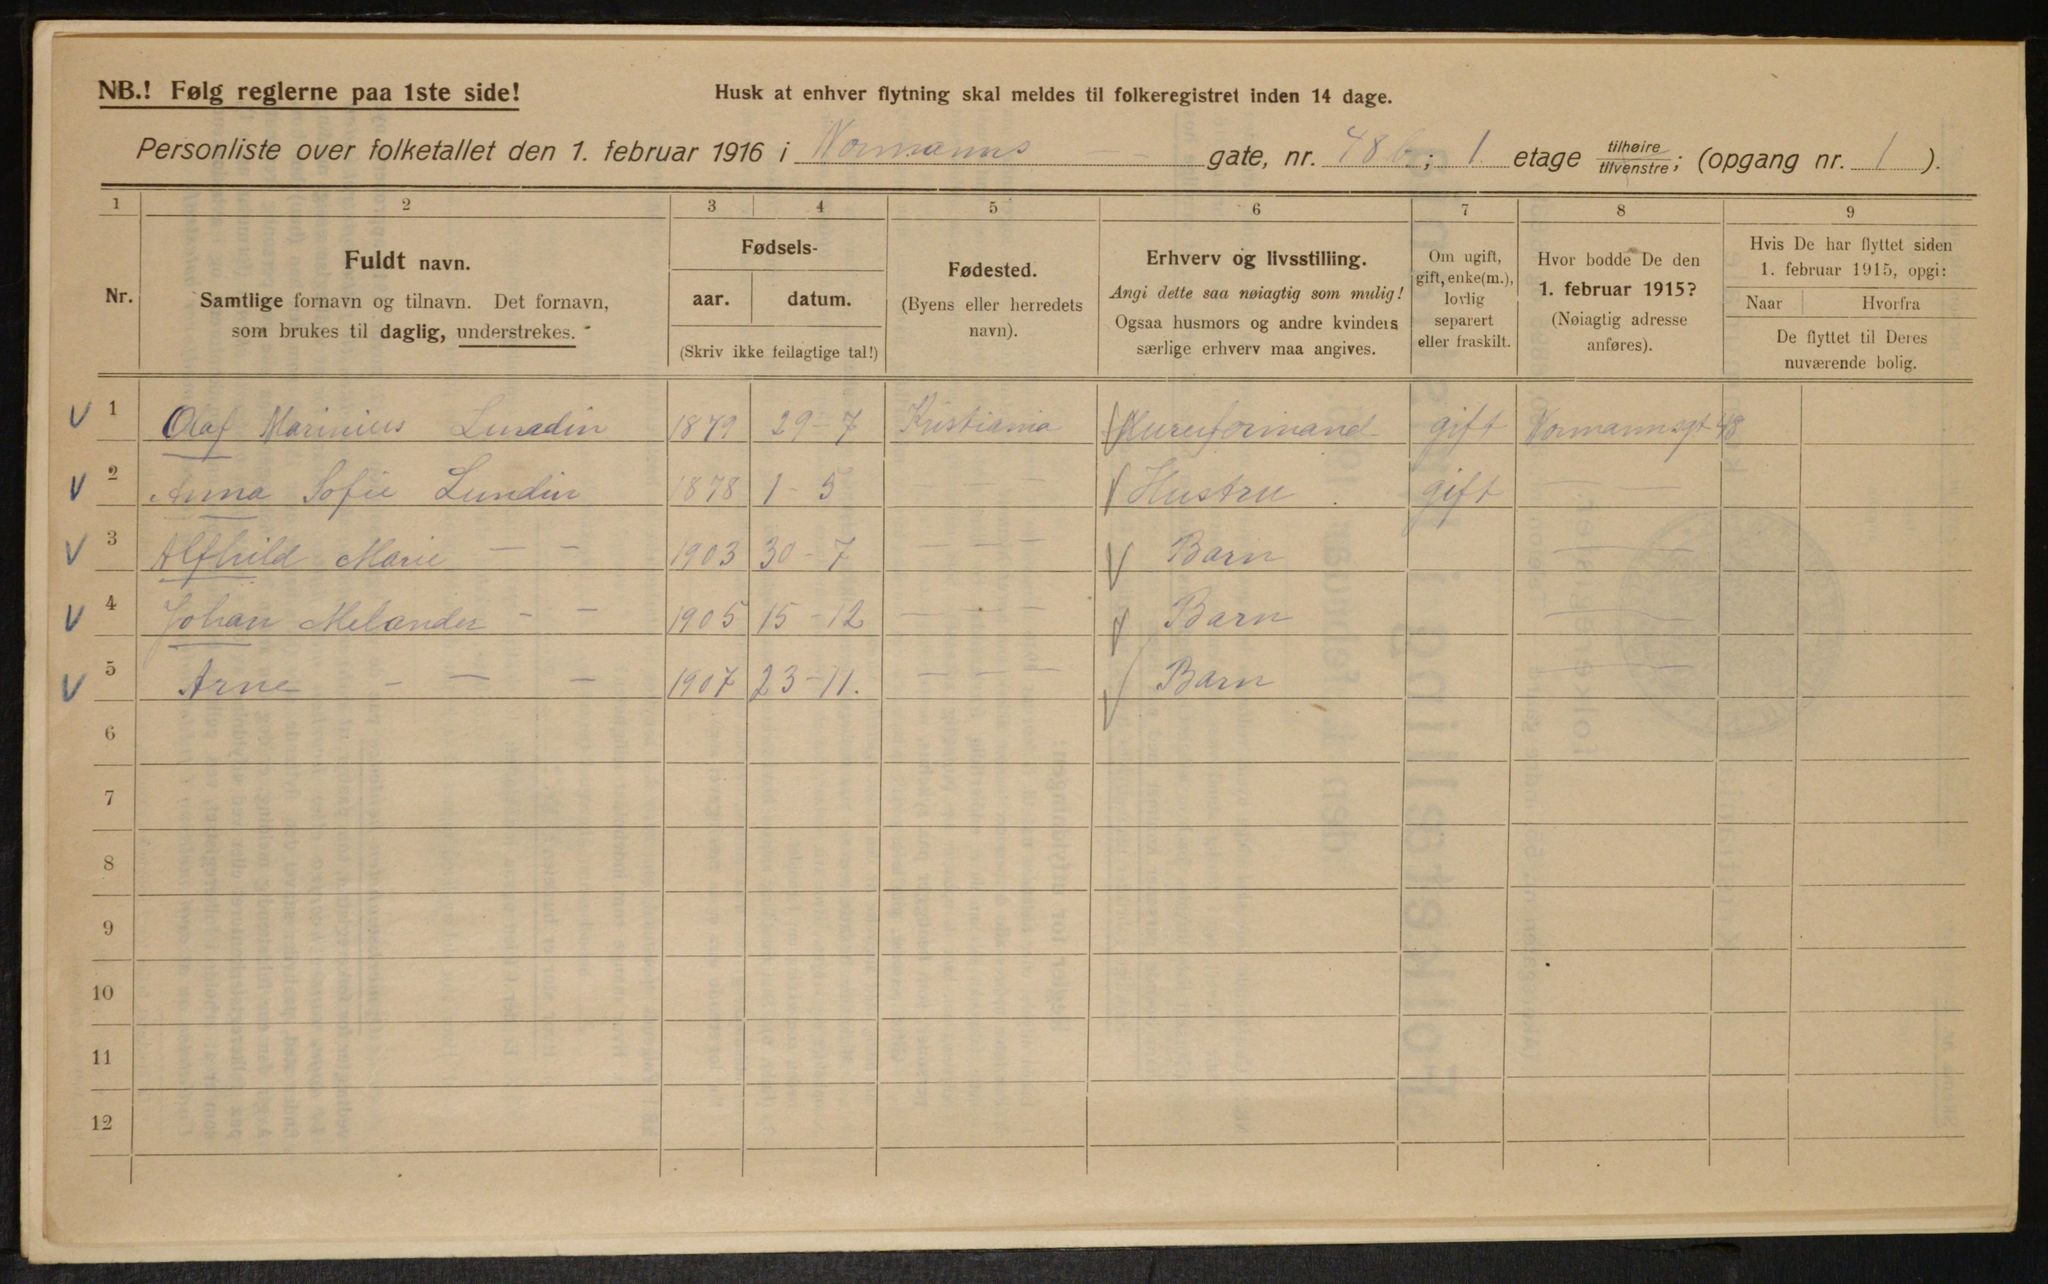 NB.! Følg reglerne paa 1ste side!
Husk at enhver flytning skal meldes til folkeregistret inden 14 dage.
Personliste over folketallet den 1. februar 1916 i Normanns — gate, nr. 48b; 1 etage tilhøire/tilvenstre; (opgang nr. 1).
1 2 3 4 5 6 7 8 9
Nr.
Fuldt navn.
Samtlige fornavn og tilnavn. Det fornavn,
som brukes til daglig, understrekes.
Fødsels-
aar. datum.
(Skriv ikke feilagtige tal!)
Fødested.
(Byens eller herredets
navn).
Erhverv og livsstilling.
Angi dette saa nøiagtig som mulig!
Ogsaa husmors og andre kvinders
særlige erhverv maa angives.
Om ugift,
gift, enke(m.),
lovlig
separert
eller fraskilt.
Hvor bodde De den
1. februar 1915?
(Nøiagtig adresse
anføres).
Hvis De har flyttet siden
1. februar 1915, opgi:
Naar Hvorfra
De flyttet til Deres
nuværende bolig.
1 Olaf Marinius Lundin 1879 29-7 Kristiania Murerformand gift Normannsgt 48
2 Anna Sofie Lundin 1878 1-5 — — Hustru gift — —
3 Alfhild Marie — — 1903 30-7 — — — Barn —
4 Johan Melander — — 1905 15-12 — — — Barn —
5 Arne — — — 1907 23-11. — — — Barn — —
6
7
8
9
10
11
12